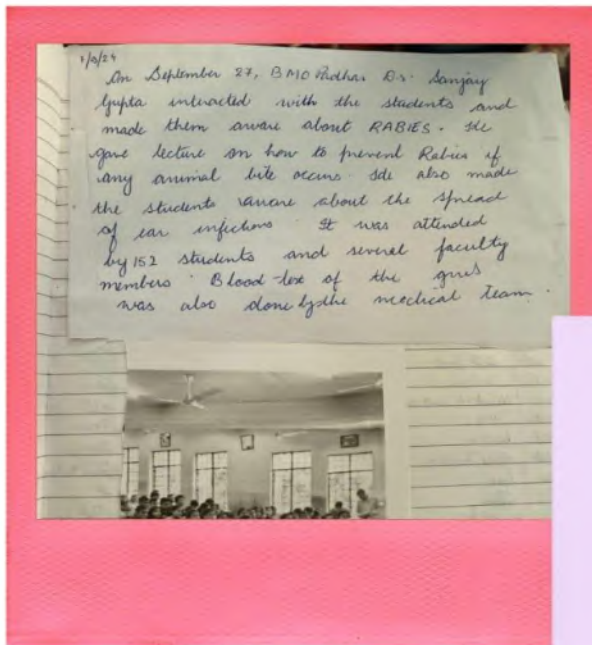 On September 27, BMO Padhar Dr. Sanjay
Gupta interacted with the students and
made them aware about RABIES. He
gave lecture on how to prevent Rabies if
any animal bite occurs. He also made
the students aware about the spread
of ear infections. It was attended
by 152 students and several faculty
members. Blood-test of the girls
was also done by the medical team.